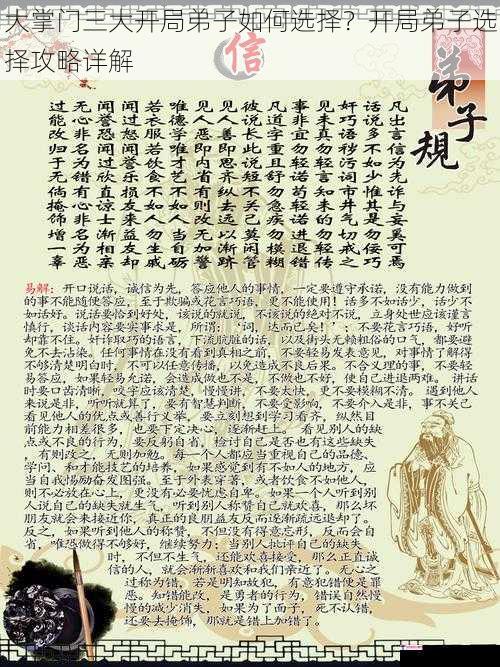 大掌门三大开局弟子如何选择？开局弟子选
择攻略详解
信
弟子规
凡出言信为先诈与妄奚可焉
话说多不如少惟其是勿佞巧
奸巧语秽污词市井气切戒之
见未真勿轻言知未的勿轻传
事非宜勿轻诺苟轻诺进退错
凡道字重且舒勿急疾勿模糊
彼说长此说短不关己莫闲管
见人善即思齐纵去远以渐跻
见人恶即内省有则改无加警
唯德学唯才艺不如人当自砺
若衣服若饮食不如人勿生戚
闻过怒闻誉乐损友来益友却
闻誉恐闻过欣直谅士渐相亲
无心非名为错有心非名为恶
过能改归于无倘掩饰增一辜
易解：开口说话，诚信为先，答应他人的事情，一定要遵守承诺，没有能力做到
的事不能随便答应，至于欺骗或花言巧语，更不能使用！话多不如话少，话少不
如话好。说话要恰到好处，该说的就说，不该说的绝对不说，立身处世应该谨言
慎行，谈话内容要实事求是，所谓：“词，达而已矣！”；不要花言巧语，好听
却靠不住。奸诈取巧的语言，下流肮脏的话，以及街头无赖粗俗的口气，都要避
免不去沾染。任何事情在没有看到真相之前，不要轻易发表意见，对事情了解得
不够清楚明白时，不可以任意传播，以免造成不良后果。不合义理的事，不要轻
易答应，如果轻易允诺，会造成做也不是，不做也不好，使自己进退两难。讲话
时要口齿清晰，咬字应该清楚，慢慢讲，不要太快，更不要模糊不清。遇到他人
来说是非，听听就算了，要有智慧判断，不要受影响，不要介入是非，事不关己
看见他人的优点或善行义举，要立刻想到学习看齐，纵然目
前能力相差很多，也要下定决心，逐渐赶上。看见别人的缺
点或不良的行为，要反躬自省，检讨自己是否也有这些缺失
，有则改之，无则加勉。每一个人都应当重视自己的品德、
学问、和才能技艺的培养，如果感觉到有不如人的地方，应
当自我惕励奋发图强。至于外表穿著，或者饮食不如他人，
则不必放在心上，更没有必要忧虑自卑。如果一个人听到别
人说自己的缺失就生气，听到别人称赞自己就欢喜，那么坏
朋友就会来接近你，真正的良朋益友反而逐渐疏远退却了。
反之，如果听到他人的称赞，不但没有得意忘形，反而会自
省，唯恐做得不够好，继续努力；当别人批评自己的缺失
时，不但不生气，还能欢喜接受，那么正直诚
信的人，就会渐渐喜欢和我们亲近了。无心之
过称为错，若是明知故犯，有意犯错便是罪
恶。知错能改，是勇者的行为，错误自然慢
慢的减少消失，如果为了面子，死不认错，
还要去掩饰，那就是错上加错了。